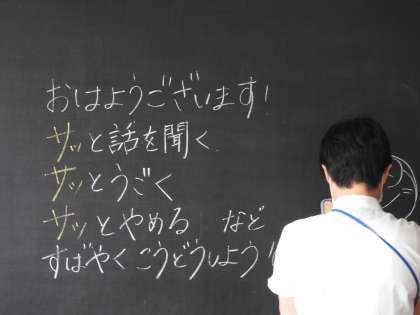 おはようございます!
サッと話を聞く
サッとうごく
サッとやめる など
すばやくこうどうしよう!